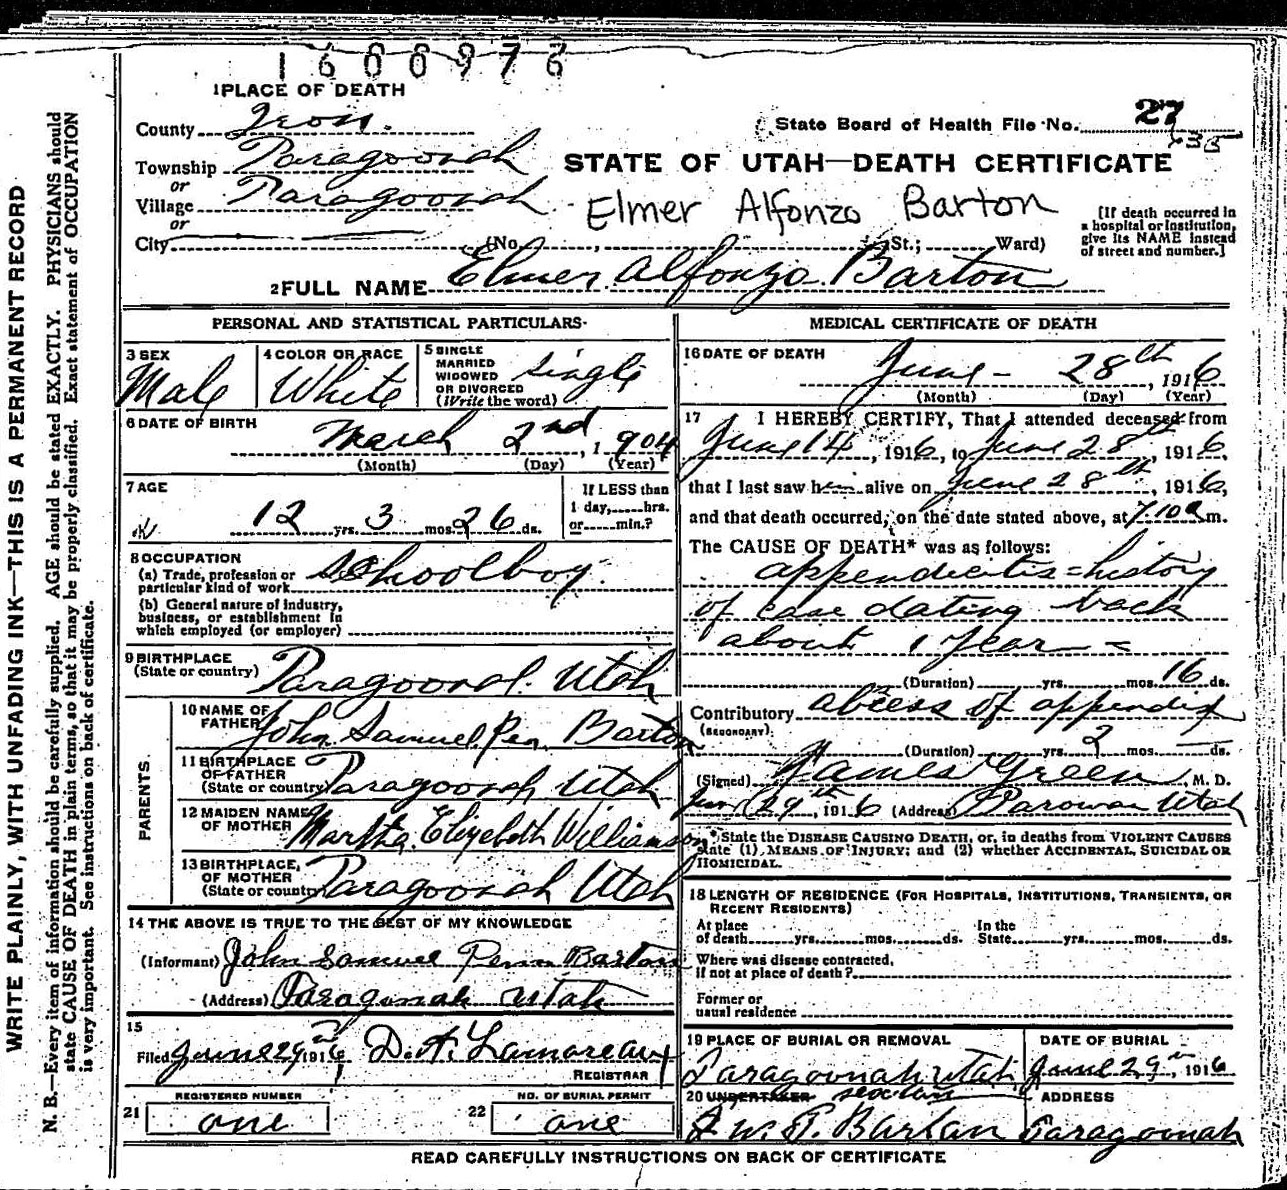 1600976
1 PLACE OF DEATH
County Iron.
State Board of Health File No. 27
235
Township Paragoonah
STATE OF UTAH—DEATH CERTIFICATE
or
Village Paragoonah
Elmer Alfonzo Barton
or
City (No. , St.; Ward)
[If death occurred in a hospital or institution, give its NAME instead of street and number.]
2 FULL NAME Elmer Alfonzo Barton
PERSONAL AND STATISTICAL PARTICULARS
3 SEX Male
4 COLOR OR RACE White
5 SINGLE MARRIED WIDOWED OR DIVORCED (Write the word) Single
6 DATE OF BIRTH March 2nd, 1904
(Month) (Day) (Year)
7 AGE
12 yrs. 3 mos. 26 ds.
If LESS than 1 day, hrs. or min.?
8 OCCUPATION
(a) Trade, profession or particular kind of work Schoolboy.
(b) General nature of industry, business, or establishment in which employed (or employer)
9 BIRTHPLACE (State or country) Paragoonah. Utah
PARENTS
10 NAME OF FATHER John Samuel Pen Barton
11 BIRTHPLACE OF FATHER (State or country) Paragoonah Utah
12 MAIDEN NAME OF MOTHER Martha Elizebeth Williamson
13 BIRTHPLACE, OF MOTHER (State or country) Paragoonah Utah
14 THE ABOVE IS TRUE TO THE BEST OF MY KNOWLEDGE
(Informant) John Samuel Penn Barton
(Address) Paragonah Utah
15
Filed June 29th 1916, D. A. Lamoreaux
REGISTRAR
21 REGISTERED NUMBER one
22 NO. OF BURIAL PERMIT one
MEDICAL CERTIFICATE OF DEATH
16 DATE OF DEATH
June - 28th, 1916
(Month) (Day) (Year)
17 I HEREBY CERTIFY, That I attended deceased from
June 14, 1916, to June 28th, 1916,
that I last saw him alive on June 28th, 1916,
and that death occurred, on the date stated above, at 7.10 a m.
The CAUSE OF DEATH* was as follows:
appendicitis = history
of case dating back
about 1 year =
(Duration) yrs. mos. 16 ds.
Contributory (SECONDARY) abcess of appendix
(Duration) yrs. 2 mos. ds.
(Signed) James Green M. D.
June 29th, 1916 (Address) Parowan Utah
*State the DISEASE CAUSING DEATH, or, in deaths from VIOLENT CAUSES
state (1) MEANS OF INJURY; and (2) whether ACCIDENTAL, SUICIDAL OR
HOMICIDAL.
18 LENGTH OF RESIDENCE (FOR HOSPITALS, INSTITUTIONS, TRANSIENTS, OR
RECENT RESIDENTS)
At place of death yrs. mos. ds. In the State yrs. mos. ds.
Where was disease contracted,
if not at place of death?
Former or
usual residence
19 PLACE OF BURIAL OR REMOVAL
Paragoonah Utah
DATE OF BURIAL
June 29th, 1916
20 UNDERTAKER sexton
W. P. Barton
ADDRESS
Paragoonah
READ CAREFULLY INSTRUCTIONS ON BACK OF CERTIFICATE
WRITE PLAINLY, WITH UNFADING INK—THIS IS A PERMANENT RECORD
N. B.—Every item of information should be carefully supplied. AGE should be stated EXACTLY. PHYSICIANS should
state CAUSE OF DEATH in plain terms, so that it may be properly classified. Exact statement of OCCUPATION
is very important. See instructions on back of certificate.